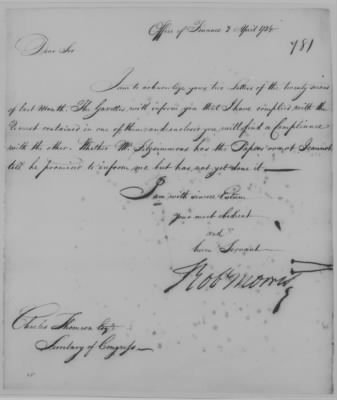 Office of Finance 2 April 1784
781
Dear Sir
I am to acknowlege your two Letters of the twenty
of last Month. The Gazettes will inform you that I have complied with the
Request contained in one of them and enclosed you will find a Compliance
with the other. Whether Mr. Fitzsimmons has the Papers or not I cannot
tell he promised to inform me but has not yet done it —
I am with sincere Esteem
your most obedient
and
hum Servant
Rob Morris
Charles Thomson Esqr.
Secretary of Congress —